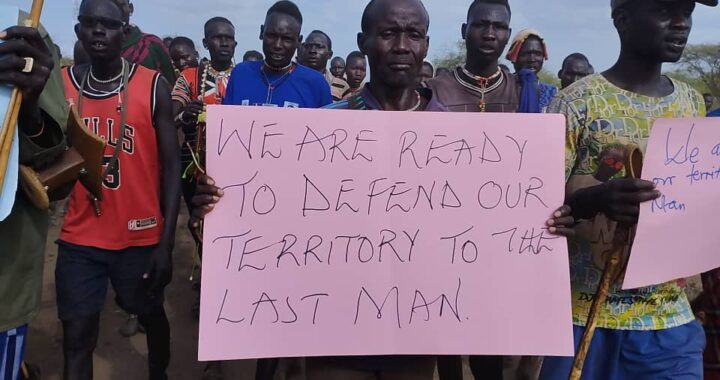 BULLS
WE ARE READY
TO DEFEND OUR
TERRITORY TO THE
LAST MAN.
We a
our territ
Man